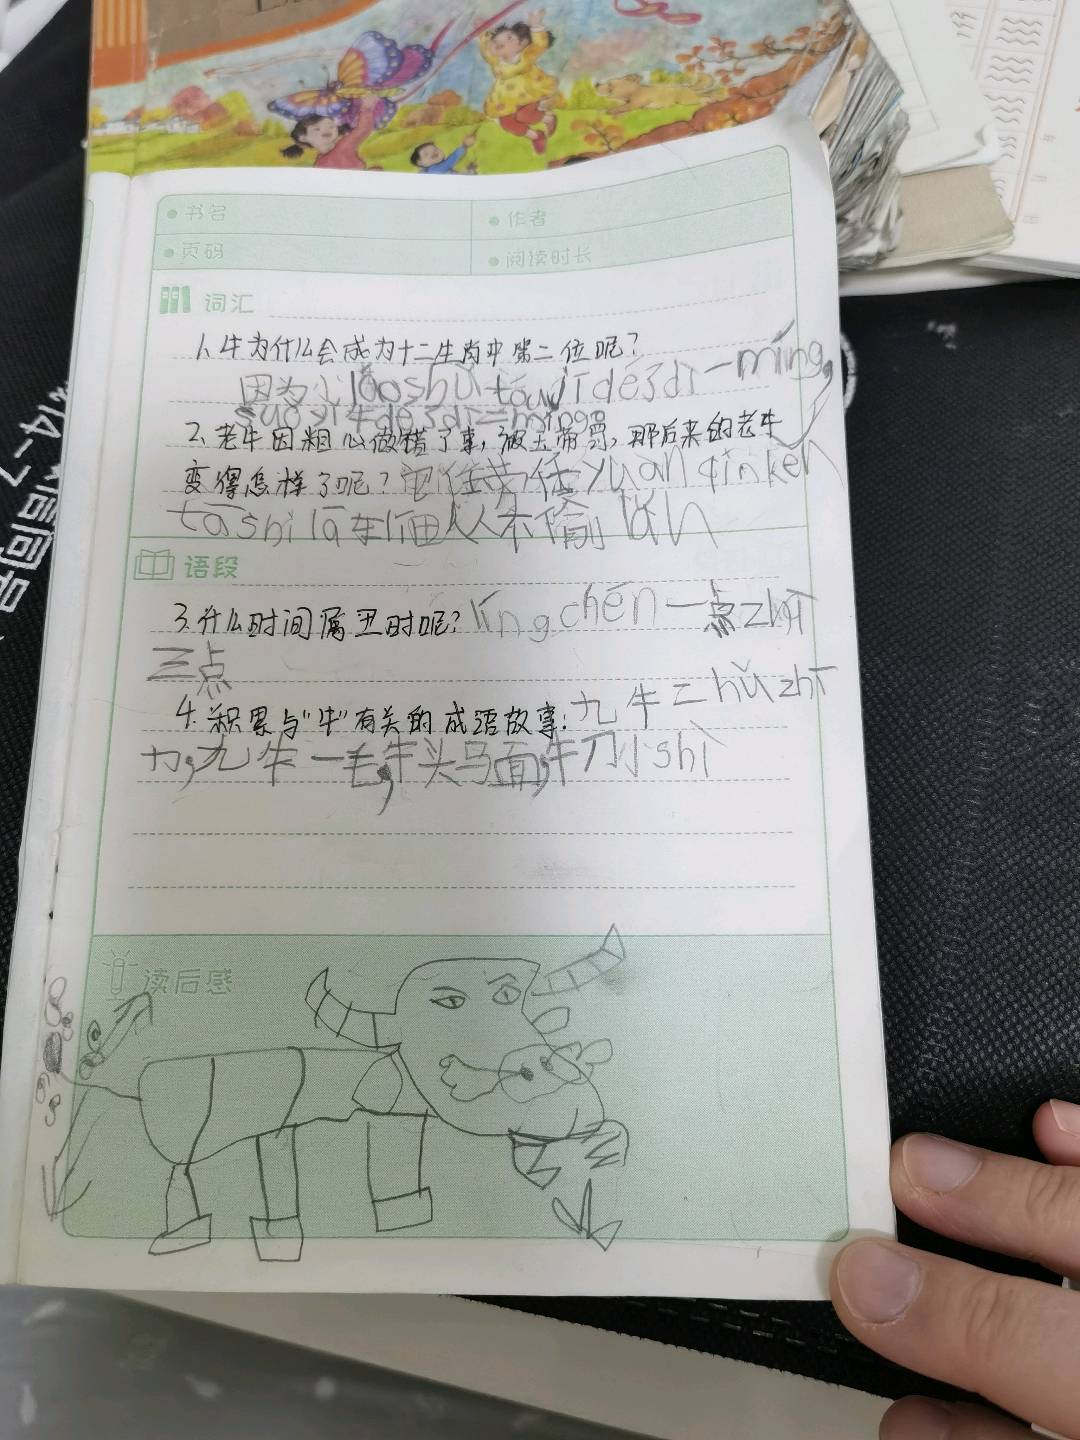 书名
作者
页码
阅读时长
词汇
1、牛为什么会成为十二生肖中第二位呢?
因为小lǎoshǔ tōu jī dé 3 dì一míng,
suǒ yǐ牛dé 3 dì二míng。
2、老牛因粗心做错了事,被玉帝罚,那后来的老牛
变得怎样了呢?任劳任yuàn qín kěn
tā shì lā车 人不偷lǎn
语段
3.什么时间属丑时呢?líng chén 一点zhì
三点
4.积累与“牛”有关的成语故事:九牛二hǔ zhī
力,九牛一毛,牛头马面,牛刀小shì
读后感